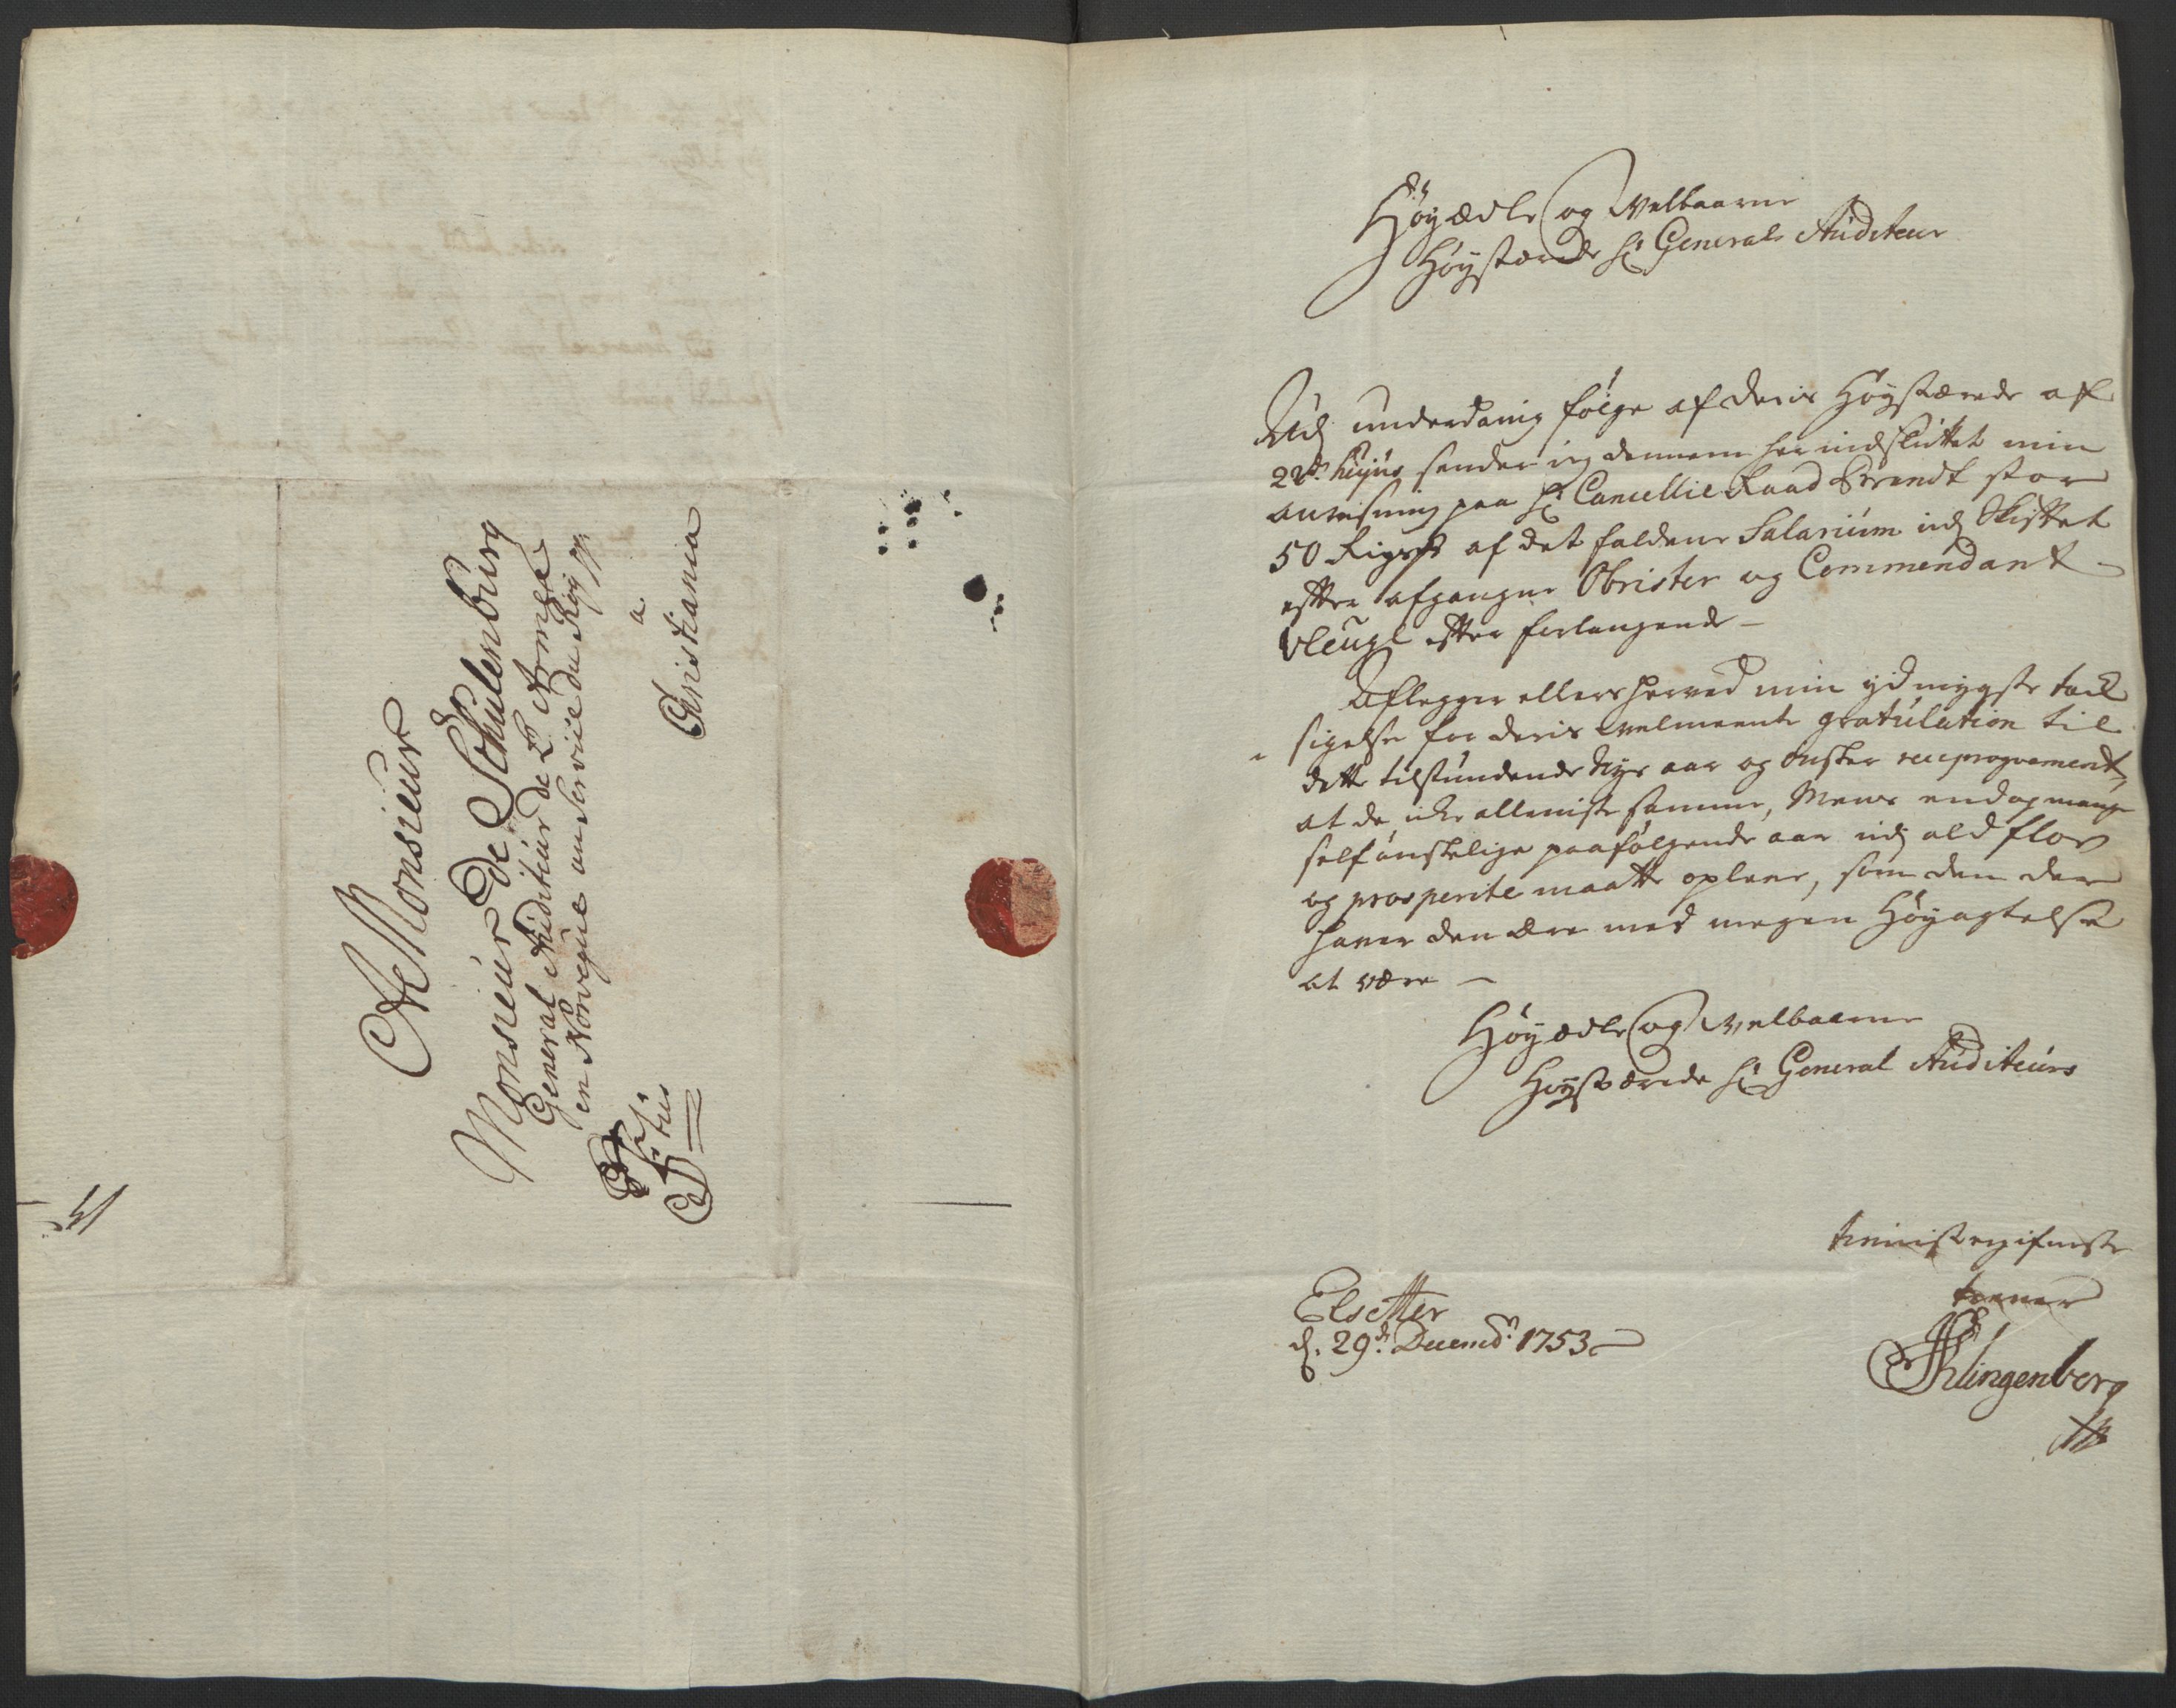 A Monsieur
Monsieur de Schulenburg
General Auditeur de L'Armée
en Norvegue au Service du Roy pp
a
Christania
Cÿtus
Cÿtus
Høyædle og Velbaarne
Høystærede Hr General Auditeur
Udj underdanig følge af deris Høystærede af
22de hujus sender jeg dennem her indsluttet min
anvisning paa Hr Cancellie Raad Brandt stor
50 Rigsdr af det faldene Salarium udj Skiftet
efter afgangne Obrister og Commendant
Vleugl efter forlangende –
Aflegger ellers herved min ydmygste tack
sigelse for deris velmeente gratulation til
dette tilstundende Nye aar og ønsker reciproquement,
at de icke alleniste samme, Mens endog mange
self ønskelige paafølgende aar udj ald flor
og prosperite maatte opleve, som den der
haver den ære med megen Høyagtelse
at være –
Høyædle og Velbaarne
Høystærede Hr General Auditeurs
tienistergifneste
tiener
Klingenberg
Elsetter
d. 29de Decembr 1753